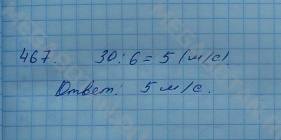 467. 30 : 6 = 5 (м/с)
Ответ: 5 м/с.